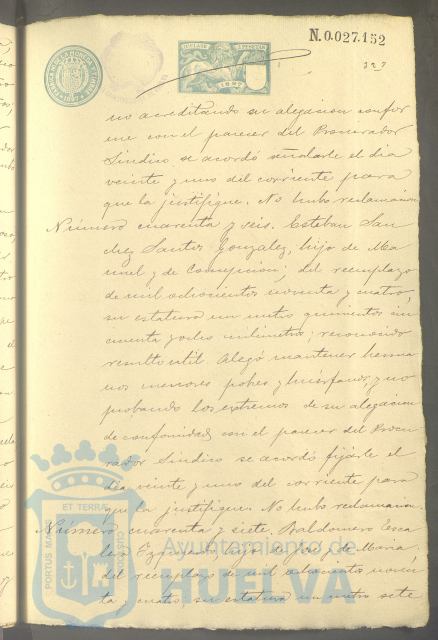 N.0.027.152
no acreditando su alegacion confor
me con el parecer del Procurador
Síndico se acordó señalarle el dia
veinte y uno del corriente para
que la justifique. No hubo reclamacion
Número cuarenta y seis. Esteban San
chez Santos Gonzalez, hijo de Ma
nuel y de Concepcion, del reemplazo
de mil ochocientos noventa y cuatro,
su estatura un metro quinientos cin
cuenta y ocho milimetros; reconocido
resultó util. Alegó mantener herma
nos menores pobres y huérfanos, y no
probando los extremos de su alegacion
de conformidad con el parecer del Procu
rador Síndico se acordó fijarle el
dia veinte y uno del corriente para
que la justifique. No hubo reclamacion
Número cuarenta y siete. Baldomero Esca
hijo de José y de Maria
del reemplazo de mil ochocientos noven
ta y cuatro, su estatura un metro sete
PORTUS MARIS ET TERRAE CUSTODIA
Ayuntamiento de
HUELVA